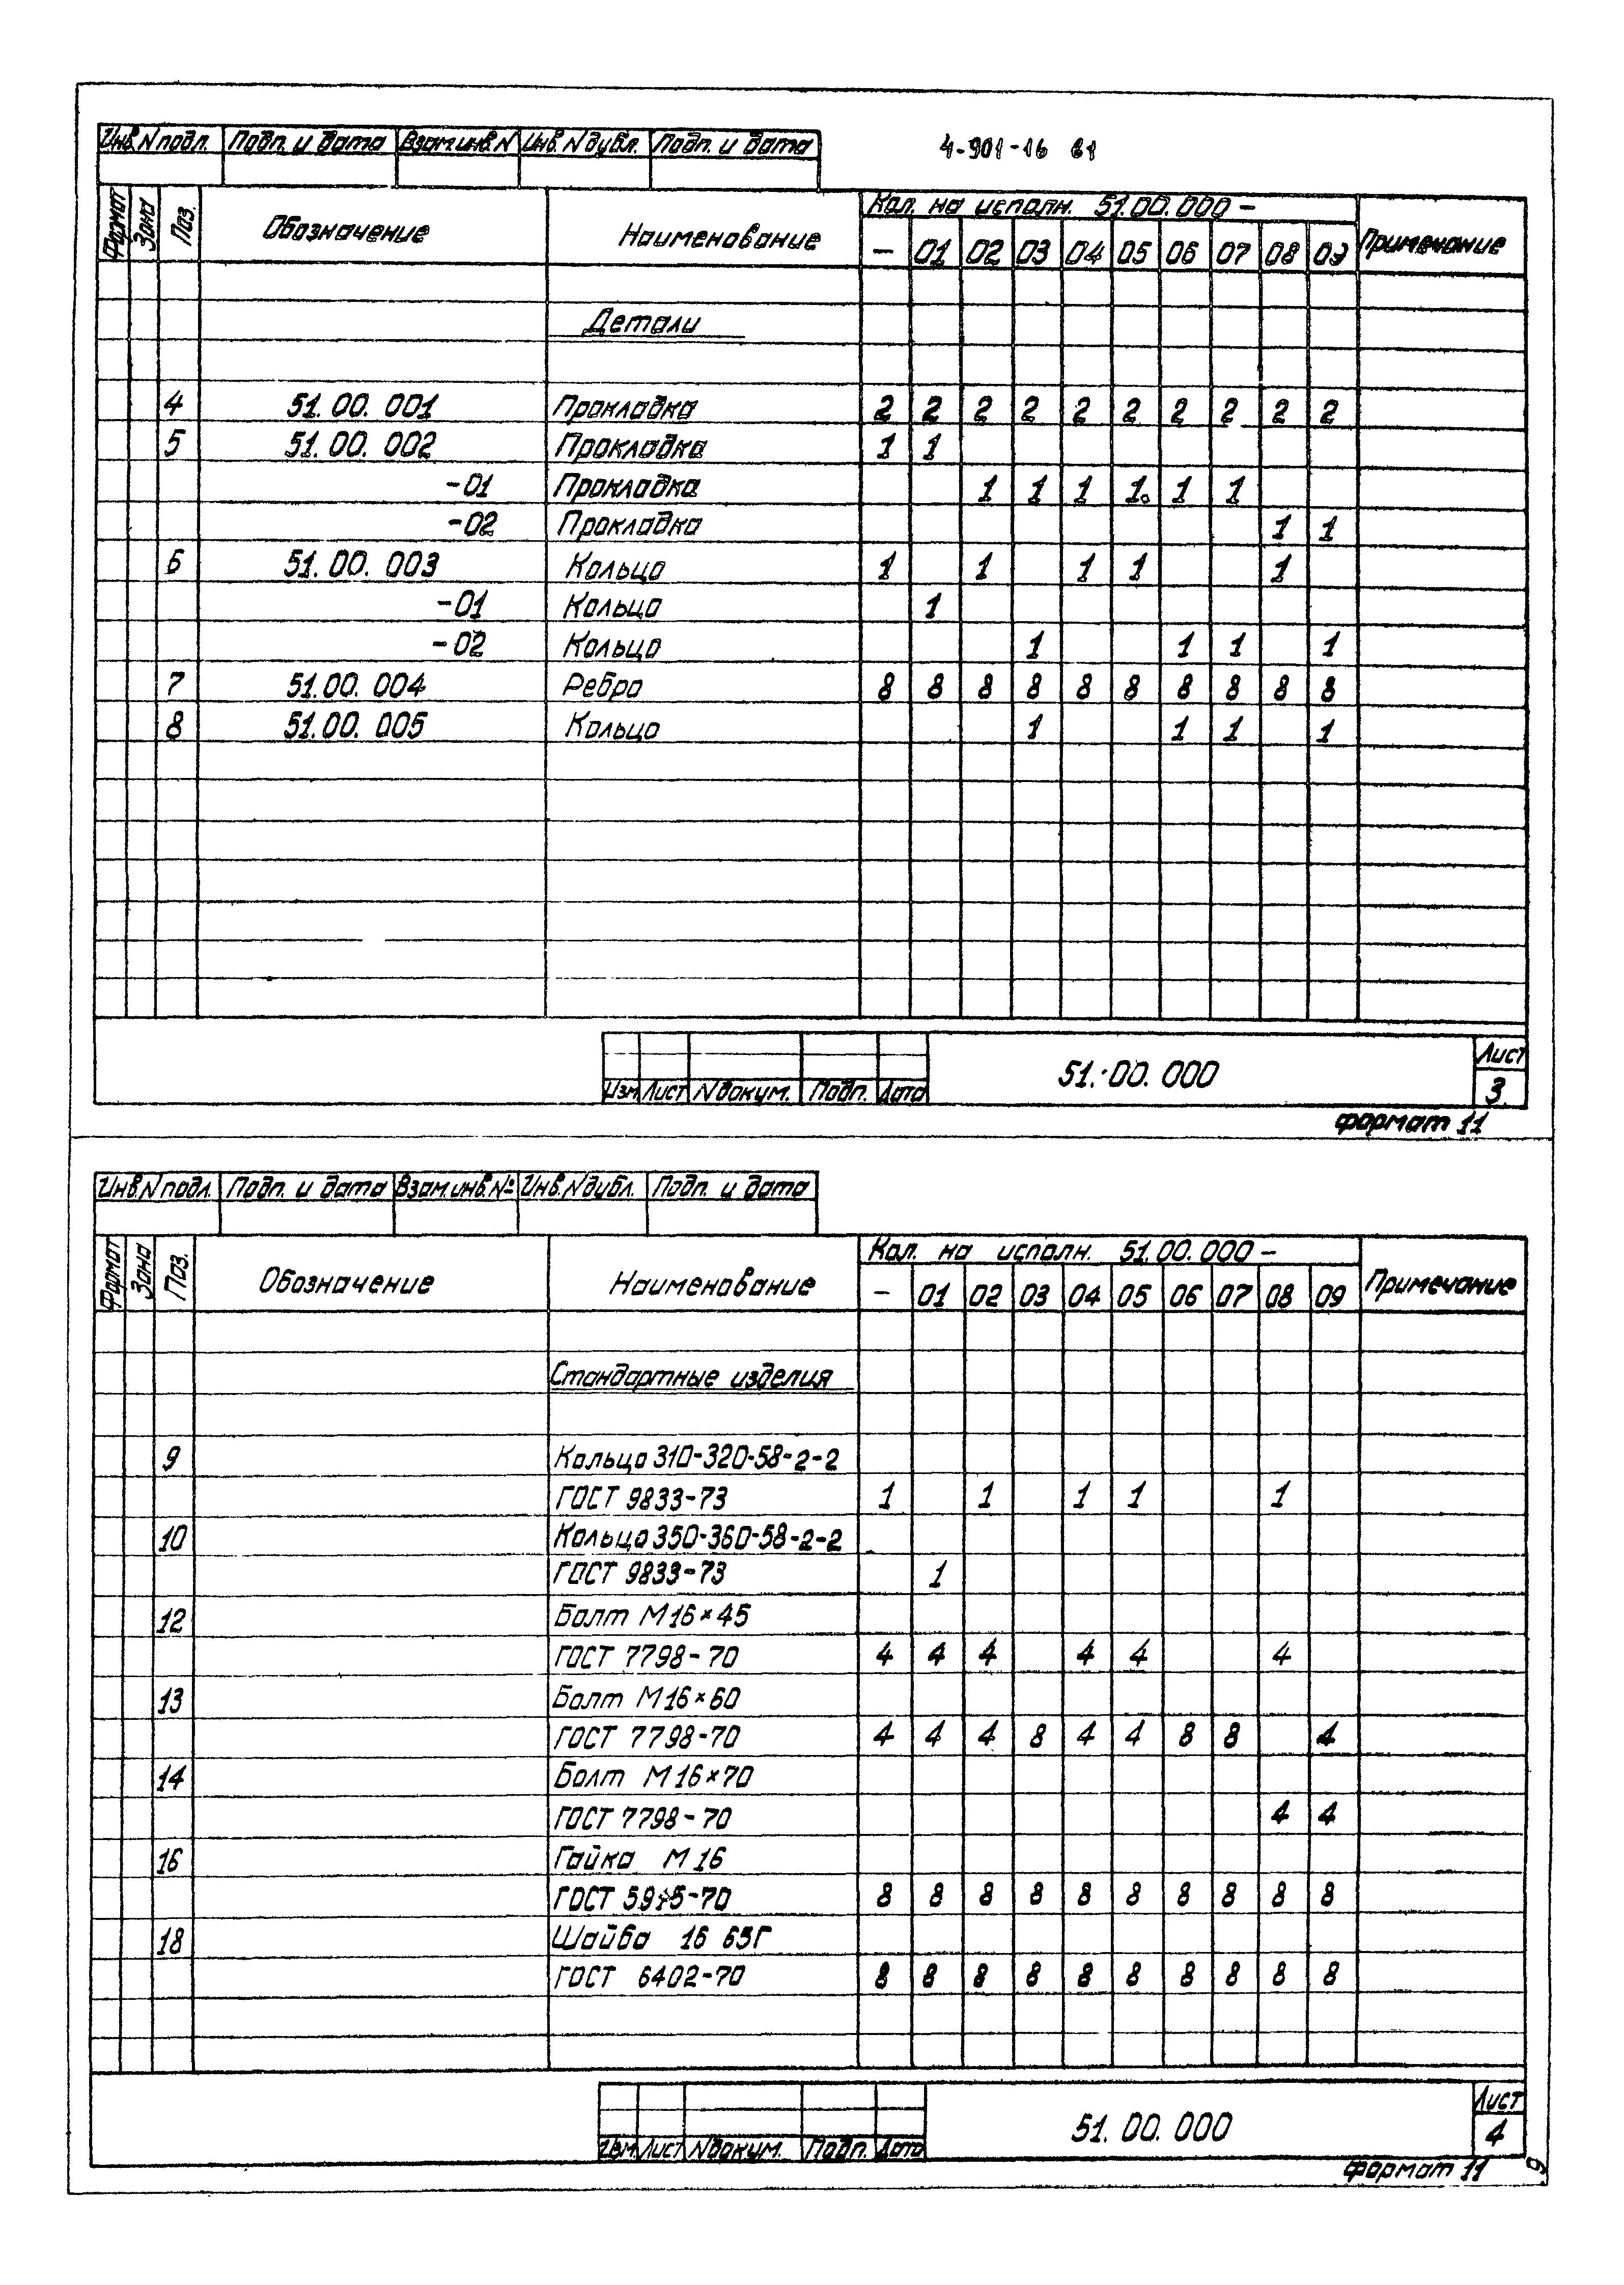 Инв.N подл. Подп. и дата Взам.инв.N Инв.N дубл. Подп. и дата
4-901-16 в1
Формат Зона Поз. Обозначение Наименование Кол. на исполн. 51.00.000 - Примечание
- 01 02 03 04 05 06 07 08 09
Детали
4 51.00.001 Прокладка 2 2 2 2 2 2 2 2 2 2
5 51.00.002 Прокладка 1 1
-01 Прокладка 1 1 1 1 1 1
-02 Прокладка 1 1
6 51.00.003 Кольцо 1 1 1 1 1
-01 Кольцо 1
-02 Кольцо 1 1 1 1
7 51.00.004 Ребро 8 8 8 8 8 8 8 8 8 8
8 51.00.005 Кольцо 1 1 1 1
Изм Лист N докум. Подп. Дата 51.00.000 Лист
3
формат 11
Инв.N подл. Подп. и дата Взам.инв.№ Инв.N дубл. Подп. и дата
Формат Зона Поз. Обозначение Наименование Кол. на исполн. 51.00.000 - Примечание
- 01 02 03 04 05 06 07 08 09
Стандартные изделия
9 Кольцо 310-320-58-2-2
ГОСТ 9833-73 1 1 1 1 1
10 Кольцо 350-360-58-2-2
ГОСТ 9833-73 1
12 Болт М16×45
ГОСТ 7798-70 4 4 4 4 4 4
13 Болт М16×60
ГОСТ 7798-70 4 4 4 8 4 4 8 8 4
14 Болт М16×70
ГОСТ 7798-70 4 4
16 Гайка М16
ГОСТ 5915-70 8 8 8 8 8 8 8 8 8 8
18 Шайба 16 65Г
ГОСТ 6402-70 8 8 8 8 8 8 8 8 8 8
Изм. Лист N докум. Подп. Дата 51.00.000 Лист
4
формат 11
9